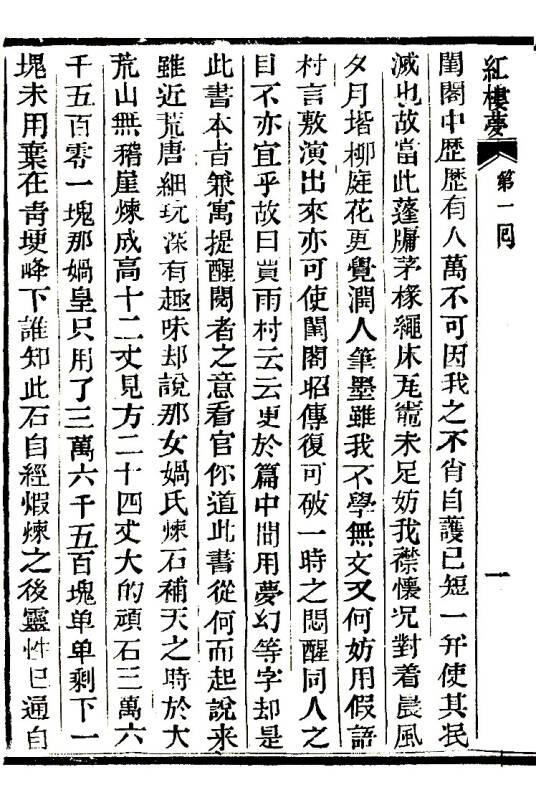 紅樓夢
第一回
一
閨閣中歷歷有人萬不可因我之不肖自護已短一并使其泯
滅也故當此蓬牖茅椽繩床瓦竈未足妨我襟懷况對着晨風
夕月堦柳庭花更覺潤人筆墨雖我不學無文又何妨用假語
村言敷演出來亦可使閨閣昭傳復可破一時之悶醒同人之
目不亦宜乎故曰賈雨村云云更於篇中間用夢幻等字却是
此書本旨兼寓提醒閱者之意看官你道此書從何而起說來
雖近荒唐細玩深有趣味却說那女媧氏煉石補天之時於大
荒山無稽崖煉成高十二丈見方二十四丈大的頑石三萬六
千五百零一塊那媧皇只用了三萬六千五百塊单单剩下一
塊未用棄在靑埂峰下誰知此石自經煅煉之後靈性已通自